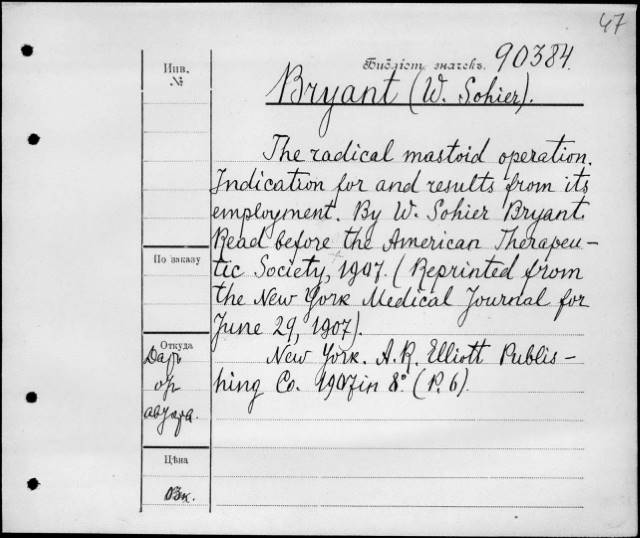 47
Инв.
№
Библіот. значекъ. 90384.
Bryant (W. Sohier).
The radical mastoid operation.
Indication for and results from its
employment. By W. Sohier Bryant.
Read before the American Therapeu-
tic Society, 1907. (Reprinted from
the New York Medical Journal for
June 29, 1907).
New York. A.R. Elliott Publis-
hing Co. 1907 in 8°. (P. 6).
По заказу
Откуда
Даръ
от
автора.
Цѣна